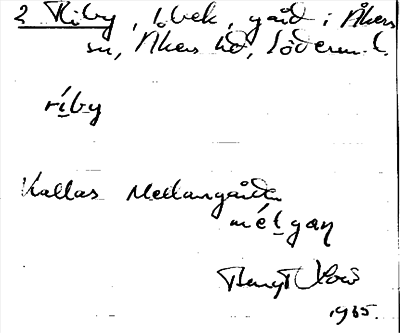 2 Riby, 1 bek, gård i Åkers
sn, Åkers hd, Söderm. l.
ríby
Kallas Mellangården
mélgan
Bengt
1935.